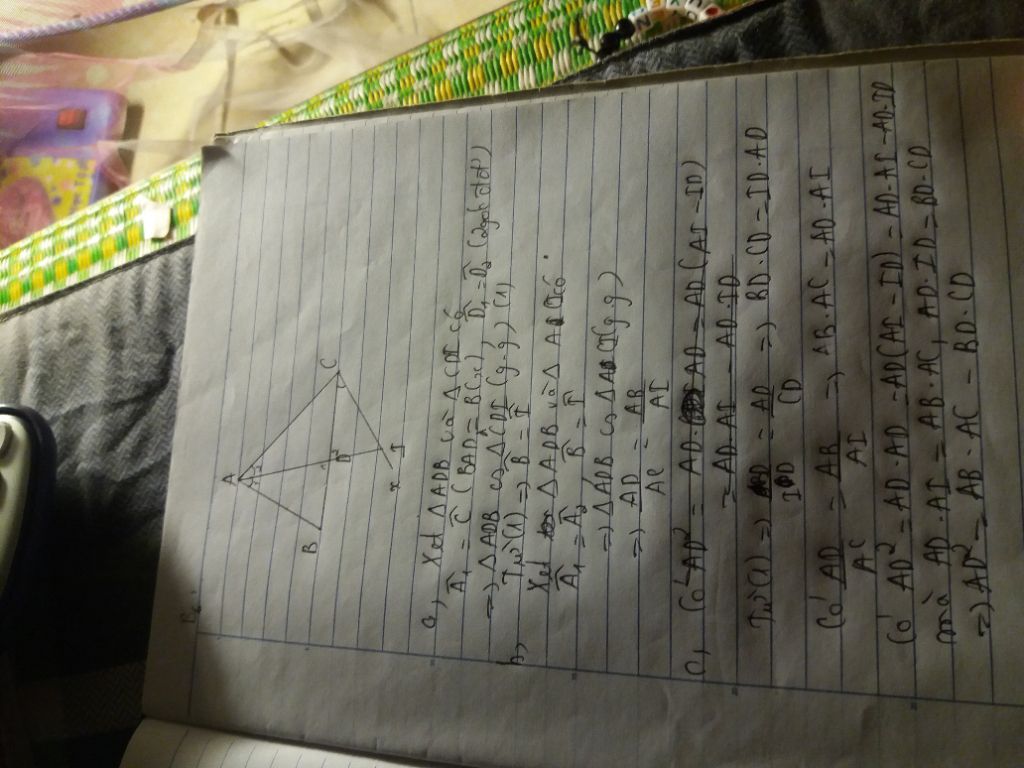 A
B
C
D
I
x
a, Xét △ADB và △CDI có
Â₁ = Ĉ (BAD = BCx), D̂₁ = D̂₂ (2 góc đđ)
=> △ADB ∽ △CDI (g.g) (1)
b, Từ (1) => B̂ = Î
Xét △ADB và △ có
Â₁ = Â₂, B̂ = Î
=> △ADB ∽ △ (g g)
=> AD/AC = AB/AI
c, Có AD² = AD. AD = AD(AI - ID)
= AD.AI - AD.ID
Từ (1) => BD/ID = AD/CD => BD.CD = ID.AD
Có AD/AC = AB/AI => AB.AC = AD.AI
Có AD² = AD.AD = AD(AI - ID) = AD.AI - AD.ID
mà AD.AI = AB.AC, AD.ID = BD.CD
=> AD² = AB.AC - BD.CD